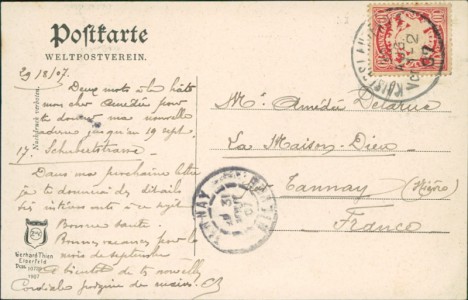 Postkarte
WELTPOSTVEREIN.
29/8/07.
Deux mots à la hâte
mon cher Amédée pour
te donner ma nouvelle
adresse jusqu'au 19 sept.
17. Schubertstrasse
Dans ma prochaine lettre
je te donnerai des détails
à ce sujet
Bonne santé.
Bonnes vacances pour le
mois de septembre
A bientôt de tes nouvelles
Cordiale poignée de mains. CB
Nachdruck verboten.
Gerhard Thien
Elberfeld
1907
10
KAISERSLAUTERN
TANNAY
Mr Amédée Delarue
La Maison-Dieu
Tannay (Nièvre)
France